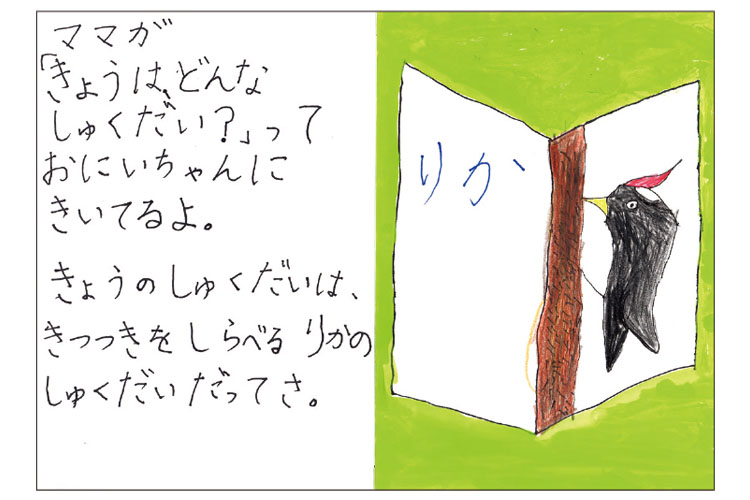 ママが
「きょうは、どんな
しゅくだい？」って
おにいちゃんに
きいてるよ。
きょうのしゅくだいは、
きつつきをしらべる りかの
しゅくだいだってさ。
りか